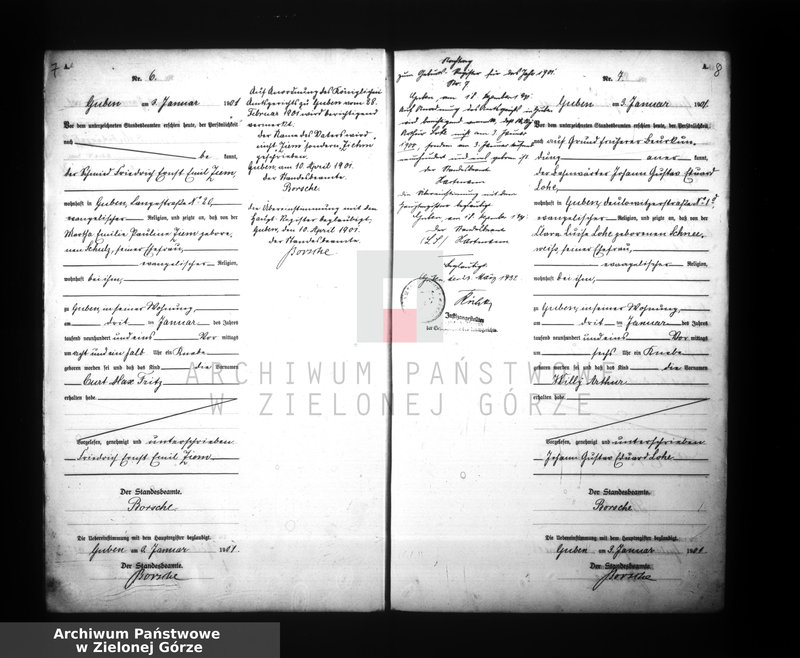 7 A.
Nr. 6.
Guben am 3. Januar 1901
Vor dem unterzeichneten Standesbeamten erschien heute, der Persönlichkeit
nach
be kannt,
der Schmied Friedrich Ernst Emil Ziem,
wohnhaft in Guben, Langestraße № 26,
evangelischer Religion, und zeigte an, daß von der
Martha Emilie Pauline Ziem gebore-
nen Schulz, seiner Ehefrau,
evangelischer Religion,
wohnhaft bei ihm,
zu Guben, in seiner Wohnung,
am dritten Januar des Jahres
tausend neunhundert und eins Vor mittags
um acht und ein halb Uhr ein Knabe
geboren worden sei und daß das Kind die Vornamen
Curt Max Fritz
erhalten habe.
Vorgelesen, genehmigt und unterschrieben
Friedrich Ernst Emil Ziem
Der Standesbeamte.
Borsche
Die Uebereinstimmung mit dem Hauptregister beglaubigt.
Guben am 3. Januar 1901.
Der Standesbeamte.
Borsche
Auf Anordnung des Königlichen
Amtsgerichts zu Guben vom 28.
Februar 1901 wird berichtigend
vermerkt:
der Name des Vaters wird
nicht Ziem sondern Ziehm
geschrieben.
Guben, am 10. April 1901.
Der Standesbeamte.
Borsche.
Die Übereinstimmung mit dem
Haupt-Register beglaubigt,
Guben, den 10. April 1901.
der Standesbeamte.
Borsche
zum Geburts-Register für das Jahr 1901.
Nr. 7
Guben, am 18. September
Auf Anordnung des Amtsgerichts in Guben
Januar
sondern am 3. Januar
neunhundert und eins geboren ist.
Der Standesbeamte
Hartmann
Die Übereinstimmung mit dem
Hauptregister beglaubigt
Guben, am 18. September
Der Standesbeamte
(L.S.) Hartmann
Beglaubigt
Guben, März 1932
Justizangestellter
A. 8
Nr. 7.
Guben am 3. Januar 1901.
Vor dem unterzeichneten Standesbeamten erschien heute, der Persönlichkeit
nach auf Grund früherer Beurkun-
dung aner kannt,
Johann Gustav Eduard
wohnhaft in Guben,
evangelischer Religion, und zeigte an, daß von der
Clara Luise geborenen
seiner Ehefrau,
evangelischer Religion,
wohnhaft bei ihm,
zu Guben, in seiner Wohnung,
am dritten Januar des Jahres
tausend neunhundert und eins Vor mittags
um sechs Uhr ein Knabe
geboren worden sei und daß das Kind die Vornamen
Willy Arthur
erhalten habe.
Vorgelesen, genehmigt und unterschrieben
Johann Gustav Eduard
Der Standesbeamte.
Borsche
Die Uebereinstimmung mit dem Hauptregister beglaubigt.
Guben am 3. Januar 1901
Der Standesbeamte.
Borsche
ARCHIWUM PAŃSTWOWE
W ZIELONEJ GÓRZE
Archiwum Państwowe
w Zielonej Górze